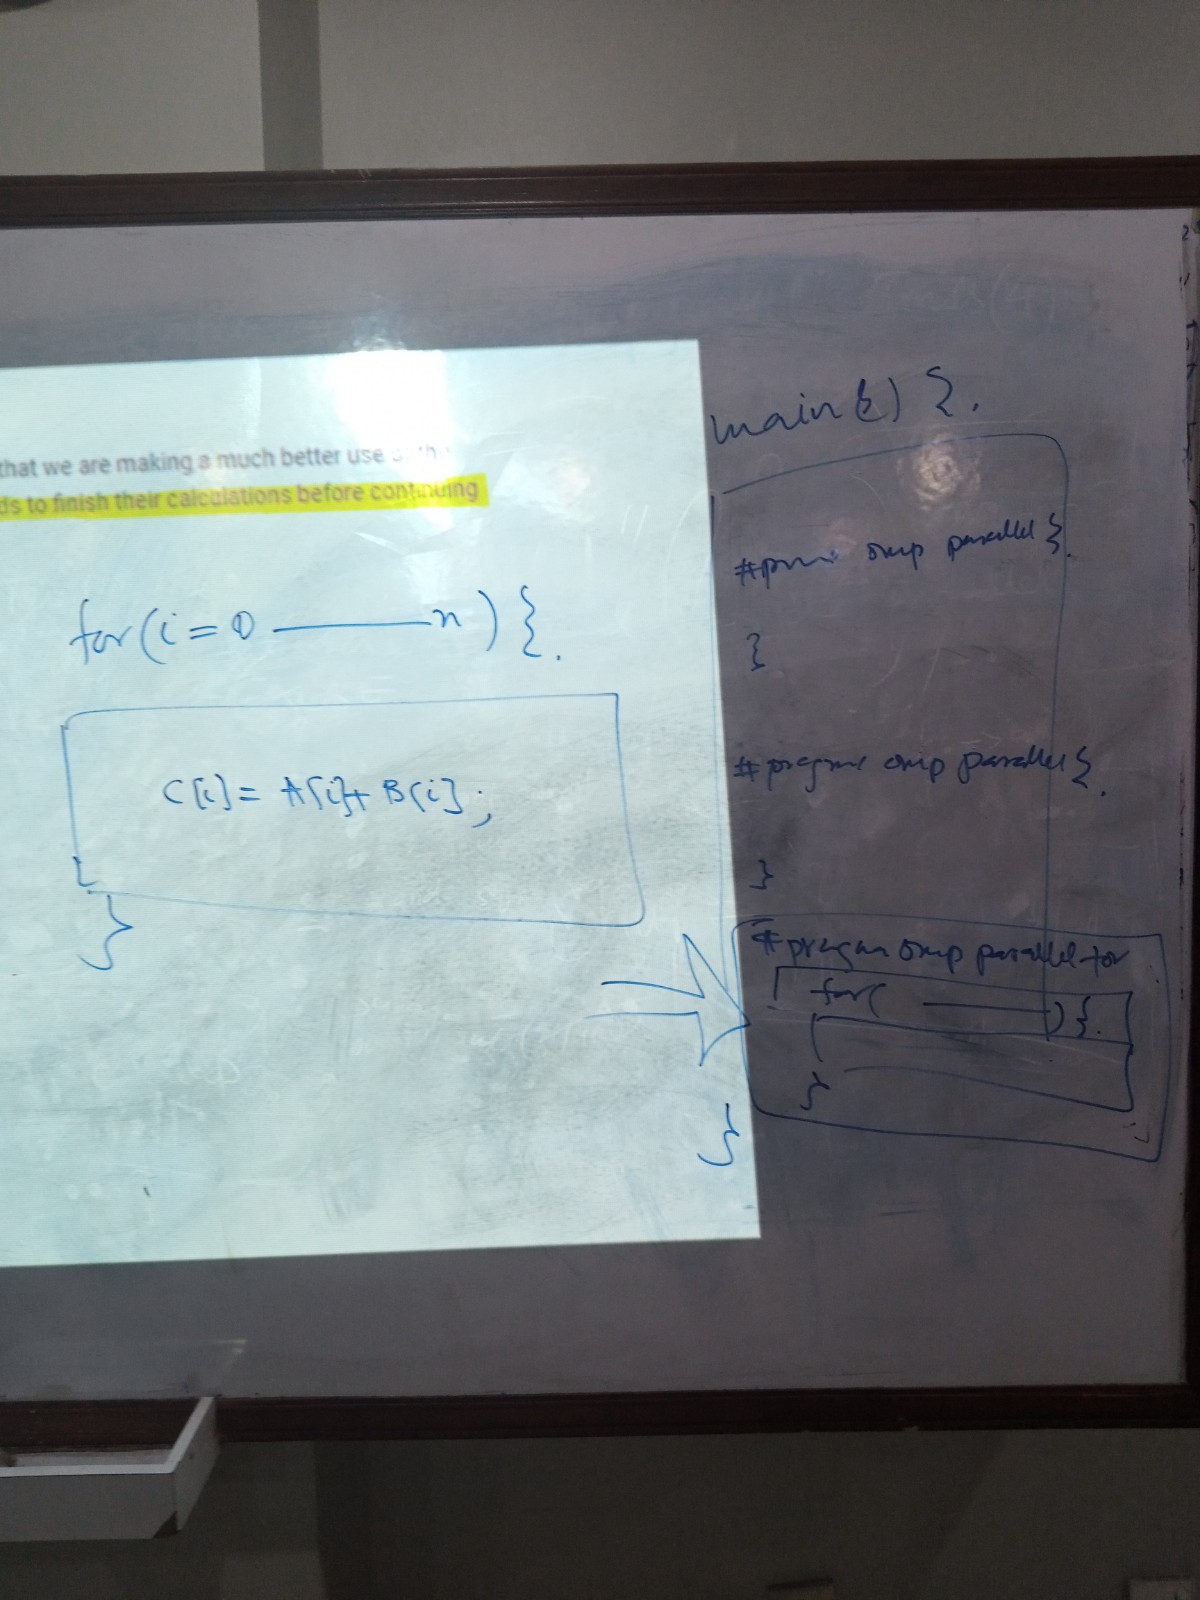 that we are making a much better use
ds to finish their calculations before continuing
for(i=0 ——— n) {.
C[i] = A[i] + B[i];
}
main() {.
omp parallel {.
}
#pragma omp parallel {.
}
#pragma omp parallel for
for( ——— ) {.
}
}